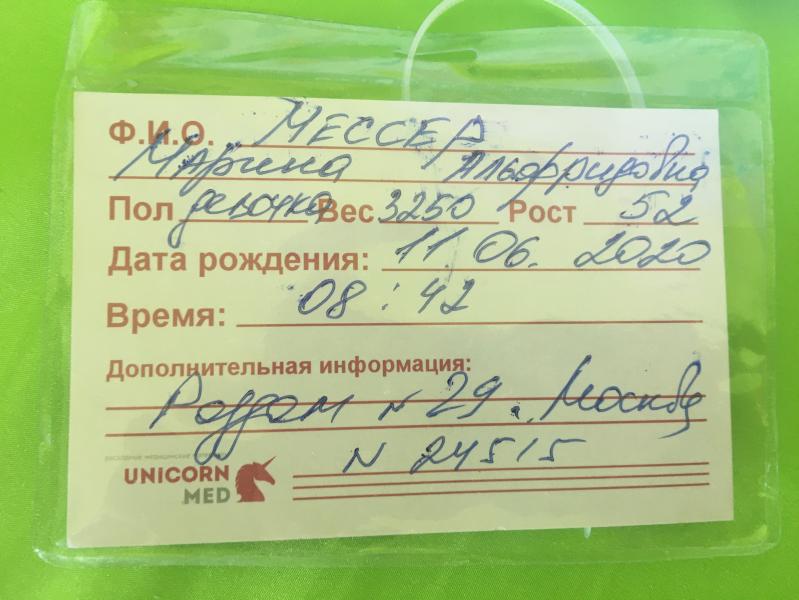 Ф.И.О. МЕССЕР
Марина Альфридовна
Пол девочка Вес 3250 Рост 52
Дата рождения: 11 06. 2020
Время: 08 : 42
Дополнительная информация:
Роддом N 29. Москва
N 24515
расходные медицинские
UNICORN
MED